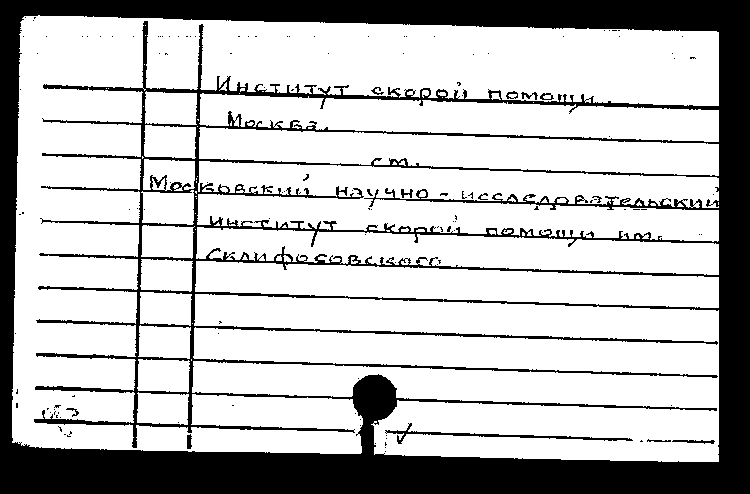 Институт скорой помощи.
Москва.
см.
Московский научно-исследовательский
институт скорой помощи им.
Склифосовского.